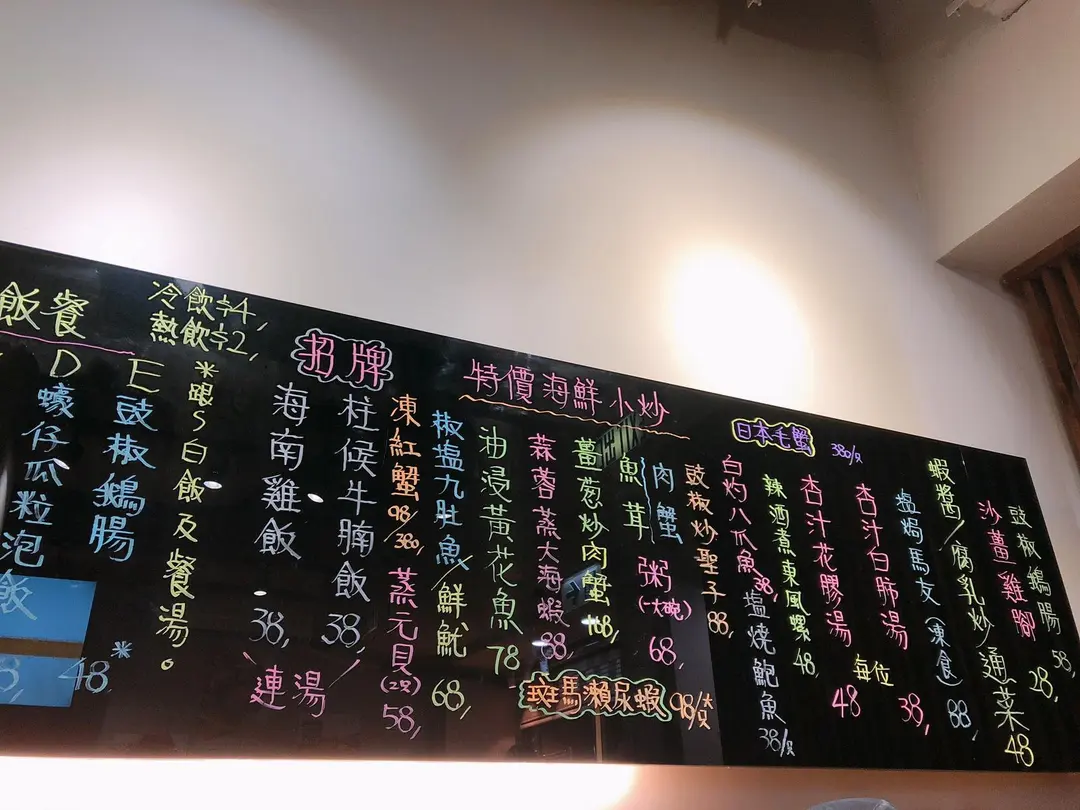 飯餐
D
蠔仔瓜粒泡飯
E
豉椒鵝腸
48*
冷飲$4,
熱飲$2,
*跟S白飯及餐湯。
招牌
海南雞飯 38,
柱侯牛腩飯 38,
連湯
特價海鮮小炒
凍紅蟹 98/380,
蒸元貝(2只) 58,
椒塩九肚魚/鮮魷 68,
油浸黃花魚 78
蒜蓉蒸大海蝦 88,
薑蔥炒肉蟹 168,
魚茸
肉蟹
粥(一大碗) 68,
豉椒炒聖子 88,
斑馬瀨尿蝦 98/只
日本毛蟹 380/只
白灼八爪魚 38,
塩燒鮑魚 38/只
辣酒煮東風螺 48
杏汁花膠湯 48
每位
杏汁白肺湯 38,
塩焗馬友(凍食) 88,
蝦醬/腐乳炒通菜 48
沙薑雞腳 28,
豉椒鵝腸 58,